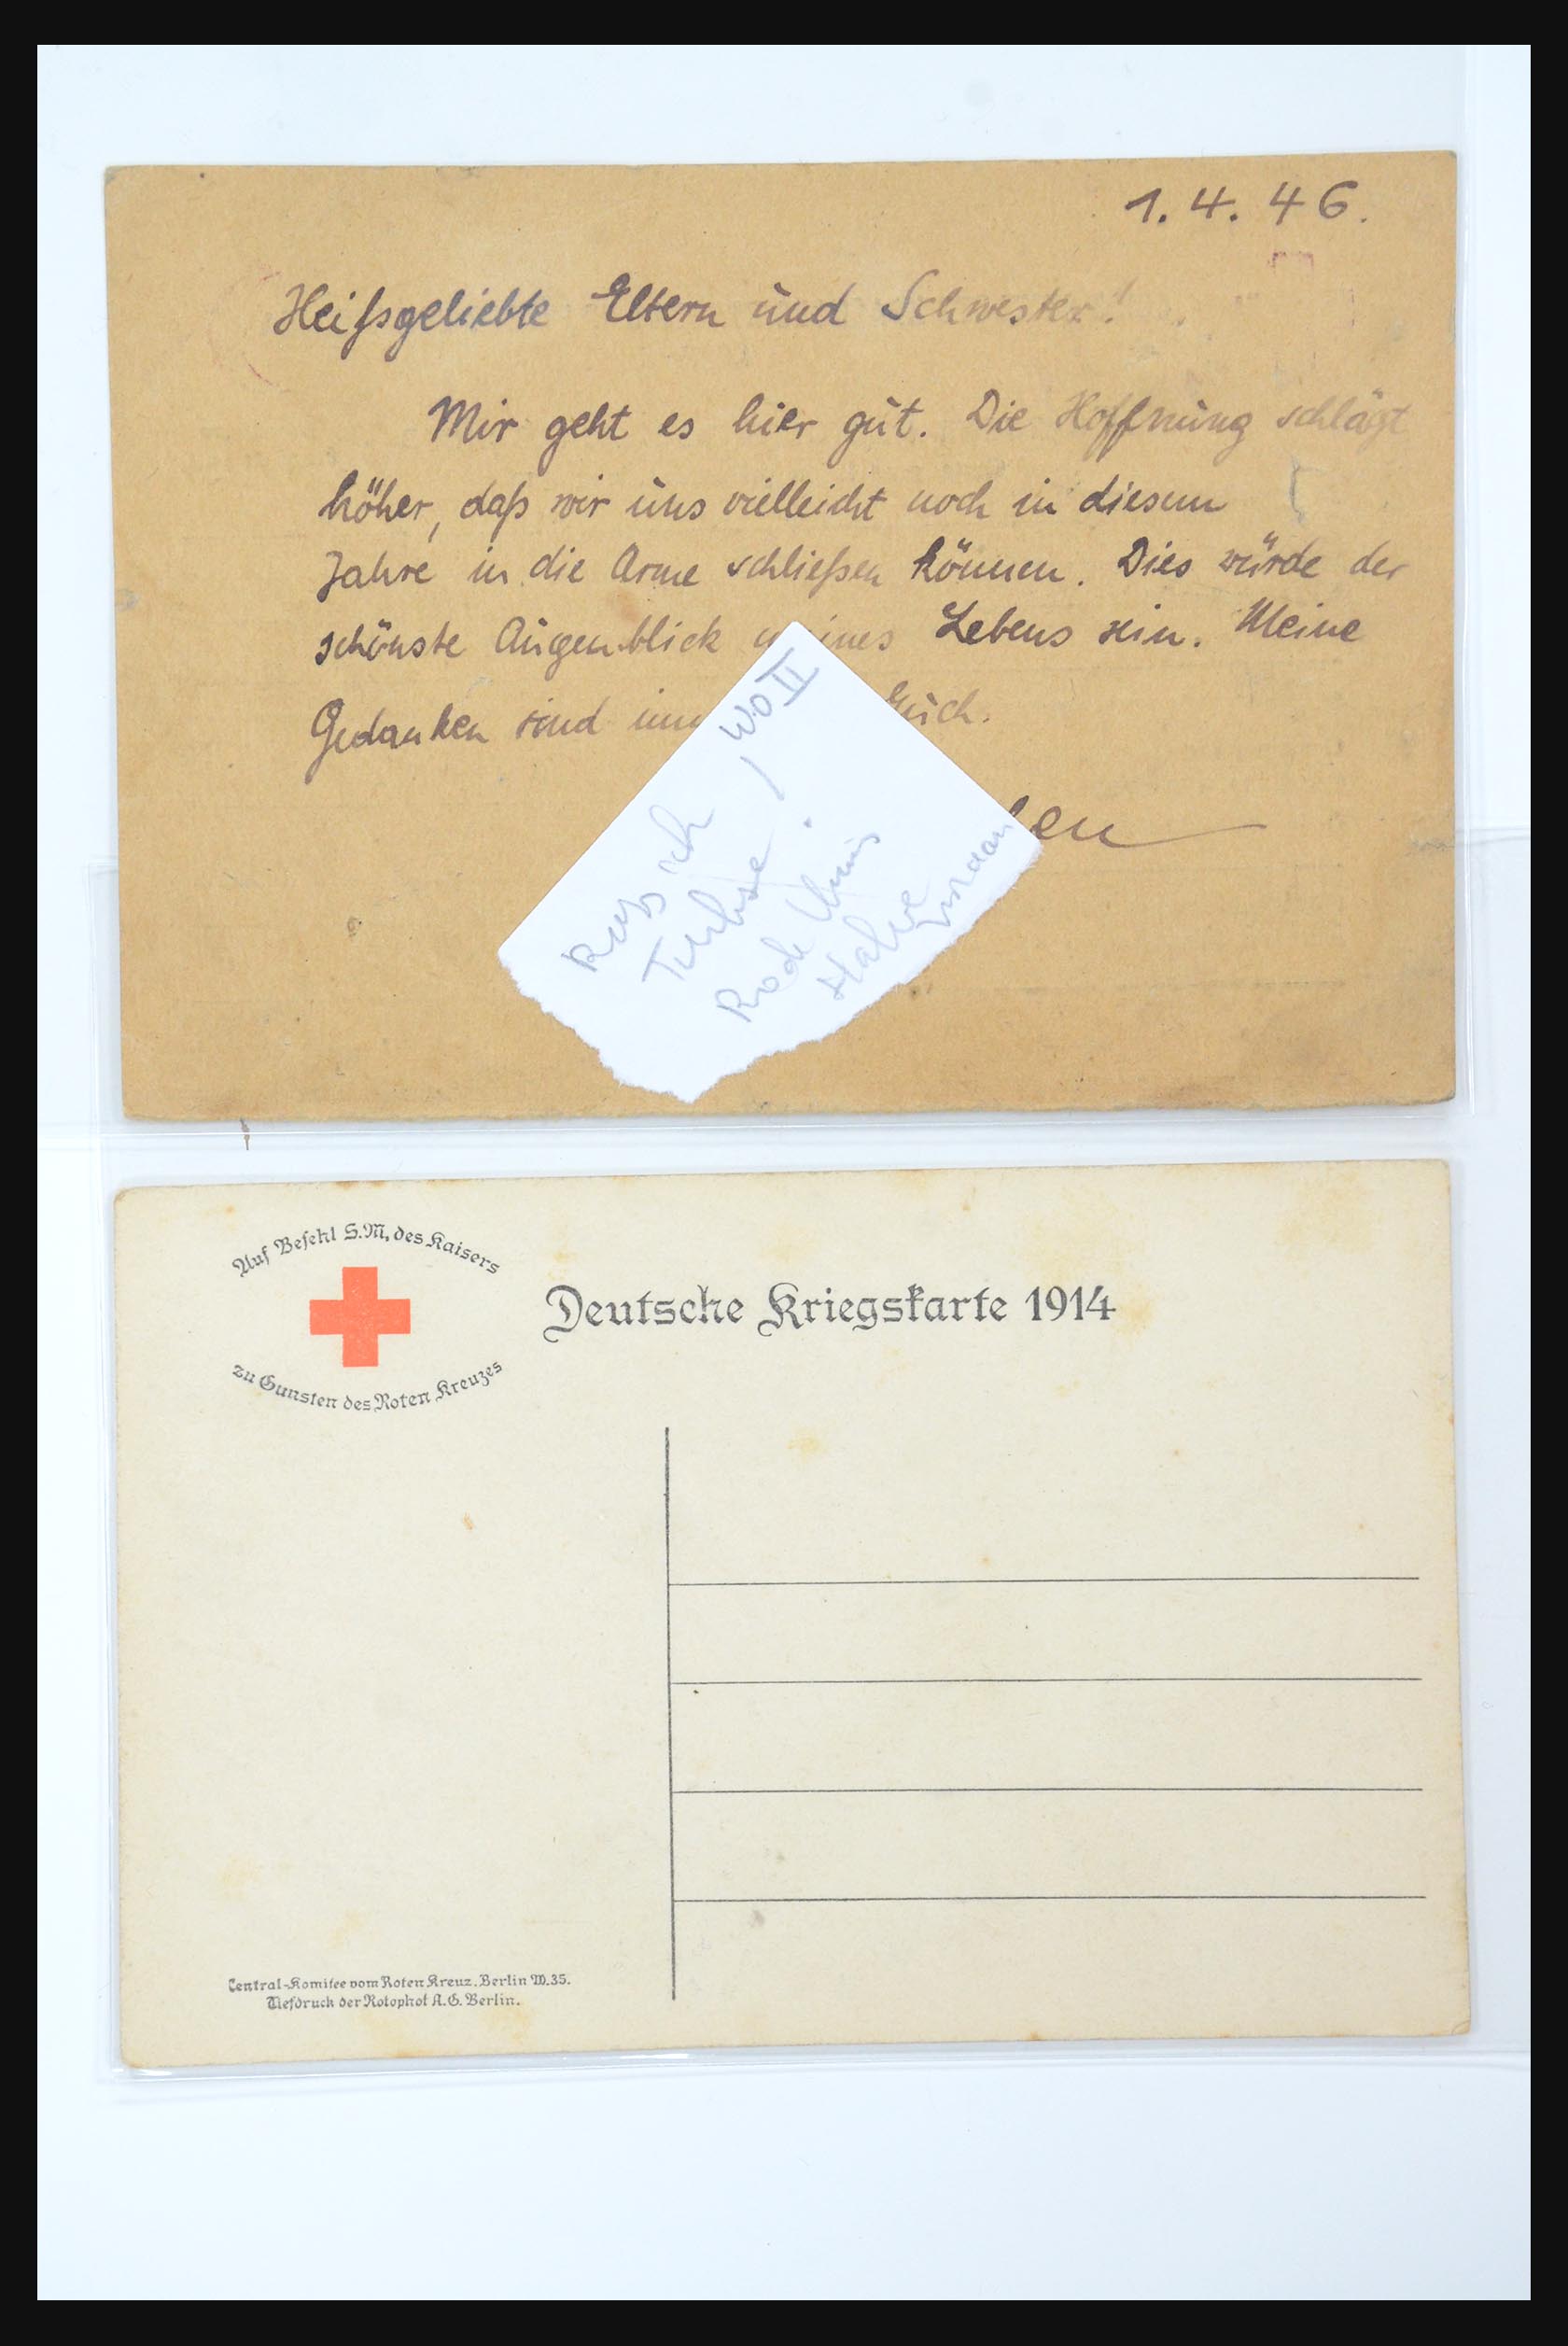 1. 4. 46.
Heißgeliebte Eltern und Schwester!
Mir geht es hier gut. Die Hoffnung schlägt
höher, daß wir uns vielleicht noch in diesem
Jahre in die Arme schließen können. Dies würde der
schönste Augenblick Lebens sein. Meine
Gedanken sind Euch.
WO II
Rode
Halve
Auf Befehl S.M. des Kaisers
zu Gunsten des Roten Kreuzes
Deutsche Kriegskarte 1914
Central-Komitee vom Roten Kreuz. Berlin W. 35.
Tiefdruck der Rotophot A.G. Berlin.